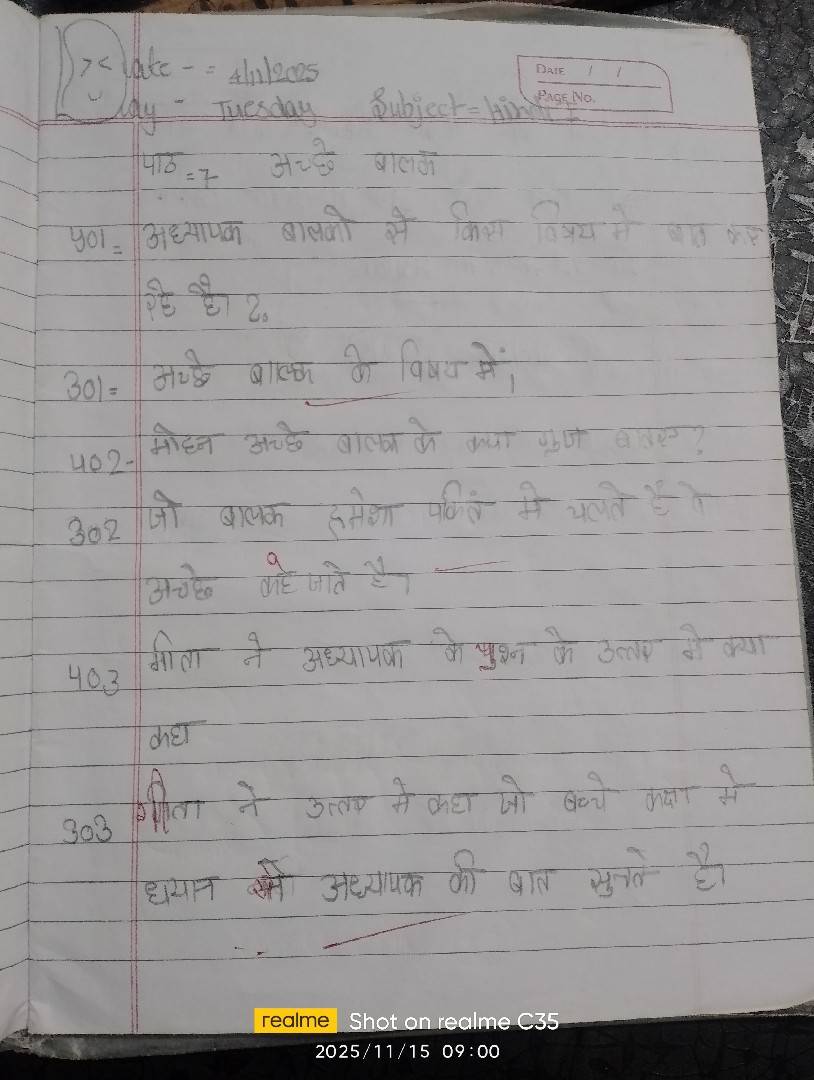 Date - = 4/11/2025
DATE / /
PAGE NO.
Day - Tuesday Subject = Hindi
पाठ = 7 अच्छे बालक
प्र01 = अध्यापक बालको से किस विषय मे बात कर
रहे है। ?
उ01 = अच्छे बालक के विषय में।
प्र02 - मोहन अच्छे बालक के क्या गुण बताए?
उ02 जो बालक हमेशा पकितं मे चलते है वे
अच्छे कहे जाते है।
प्र03 गीता ने अध्यापक के प्रश्न के उत्तर मे क्या
कहा
उ03 गीता ने उत्तर मे कहा जो बच्चे कक्षा मे
धयान से अध्यापक की बात सुनते है।
realme Shot on realme C35
2025/11/15 09:00